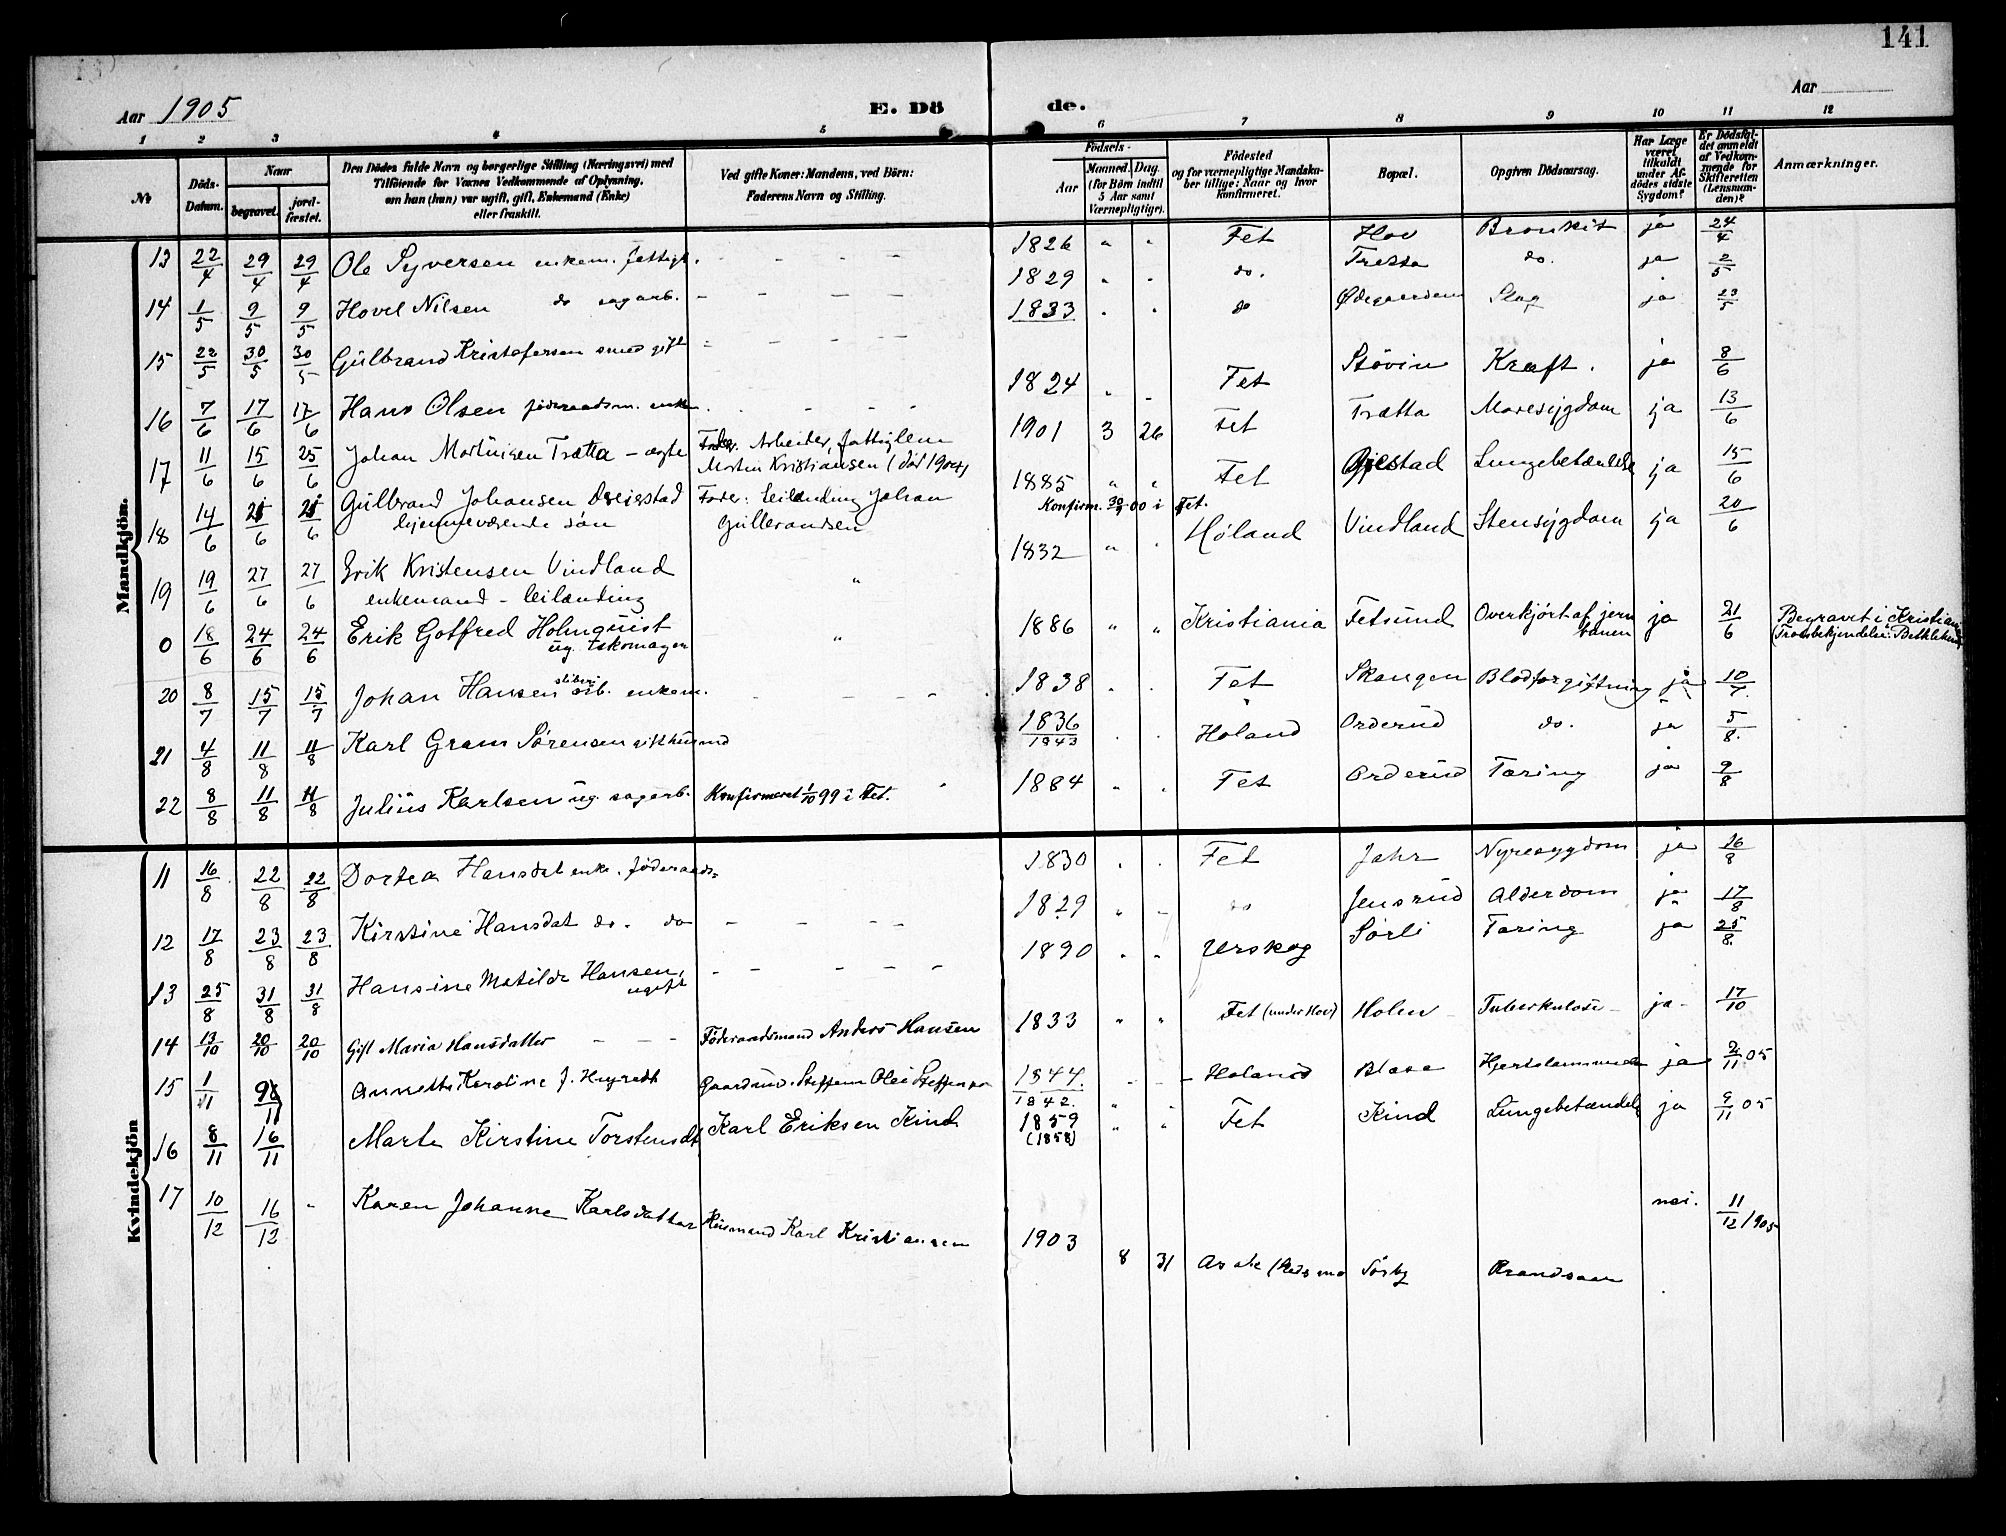 141
Aar 1905
E. Dö de.
Aar
1 2 3 4 5 6 7 8 9 10 11 12
No
Döds-Datum.
Naar
begravet.
jord-fæstet.
Den Dödes fulde Navn og borgerlige Stilling (Næringsvei) med
Tilföiende for Voxnes Vedkommende af Oplysning,
om han (hun) var ugift, gift, Enkemand (Enke)
eller fraskilt.
Ved gifte Koner: Mandens, ved Börn:
Faderens Navn og Stilling.
Födsels-
Aar
Maaned. Dag.
(for Börn indtil
5 Aar samt
Værnepligtige).
Födested
og for værnepligtige Mandska-
ber tillige: Naar og hvor
konfirmeret.
Bopæl.
Opgiven Dödsaarsag.
Har Læge
været
tilkaldt
under Af-
dödes sidste
Sygdom?
Er Dödsfal-
det anmeldt
af Vedkom-
mende for
Skifteretten
(Lensman-
den)?
Anmærkninger.
Mandkjön.
13 22/4 29/4 29/4 Ole Syversen enkem. fattigl. - - - - 1826 " " Fet Hov Bronkit ja 24/4
14 1/5 9/5 9/5 Hovel Nilsen do sagarb. - - - - 1829 " " do. Trætta do. ja 2/5
15 22/5 30/5 30/5 Gulbrand Kristofersen smed gift - - - - 1833 " " do Ødegaarden Slag ja 23/5
16 7/6 17/6 17/6 Hans Olsen föderaadsm. enkem. - - - 1824 " " Fet Stövin Kræft. ja 8/6
17 11/6 15/6 25/6 Johan Martinsen Trætta - ægte Fader. Arbeider, fattiglem 1901 3 26 Fet Trætta Mavesygdom ja 13/6
Martin Kristiansen (död 1904)
18 14/6 25/6 25/6 Gulbrand Johansen Fader: Leilænding Johan 1885 " " Fet Lungebetændelse ja 15/6
hjemmeværende sön Gulbrandsen Konfirm. 00 i Fet.
19 19/6 27/6 27/6 Erik Kristensen Vindland " 1832 " " Höland Vindland Stensygdom ja 20/6
enkemand - leilænding
0 18/6 24/6 24/6 Erik Gotfred Holmquist " 1886 " " Kristiania Fetsund Overkjört af jern ja 21/6 Begravet i Kristiania
ug. skomager banen (Trosbekjendelse: Bethlehem)
20 8/7 15/7 15/7 Johan Hansen sliberi arb. enkem. - - - - 1838 " " Fet Skangen Blodforgiftning ja 10/7
21 4/8 11/8 11/8 Karl Gram Sörensen gift husmd 1836 " " Höland Orderud do. ja 5/8.
1843
22 8/8 11/8 11/8 Julius Karlsen ug. sagarb. Konfirmeret 1/10 99 i Fet. 1884 " " Fet Orderud Tæring ja 9/8
Kvindekjön
11 16/8 22/8 22/8 Dortea Hansdat enke. föderaads- 1830 " " Fet Jahr Nyresygdom ja 16/8
12 17/8 23/8 23/8 Kirstine Hansdat do. do - - - - 1829 " " do Jensrud Alderdom ja 17/8
13 25/8 31/8 31/8 Hansine Matilde Hansen, - - - - - 1890 " " Urskog Sörli Tæring ja 25/8.
ugift
14 13/10 20/10 20/10 Gift Maria Hansdatter - - - Föderaadsmand Anders Hansen 1833 " " Fet (under Hov) Holm - Tuberkulose - ja - 17/10
15 1/11 9/11 Annette Karoline J. Gaardmd. Steffen Olei Steffensen 1844. - - Höland ja 2/11 05
1842.
16 8/11 16/11 Marte Kirstine Torstensdt Karl Eriksen Kind 1859 " " Fet Kind Lungebetændelse ja 9/11 05
(1858)
17 10/12 16/12 " Karen Johanne Karlsdatter Husmand Karl Kristiansen 1903 8 31 Sörby Brandsaar nei. 11/12 1905